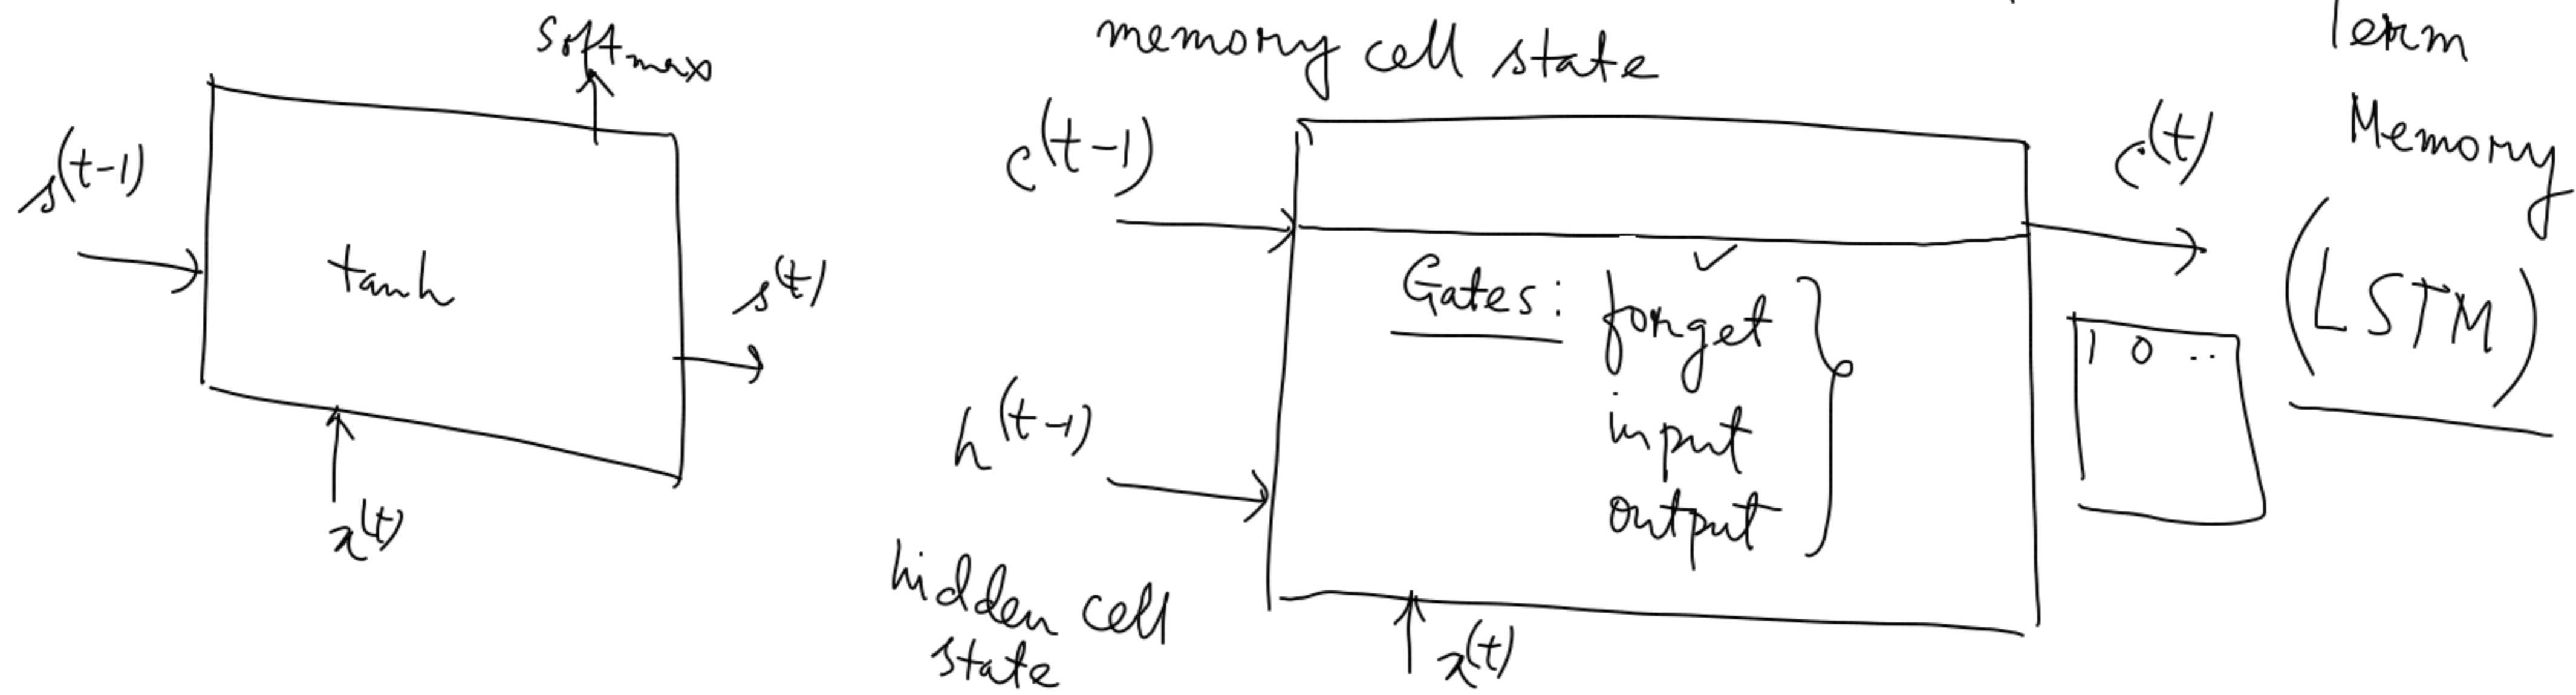 softmax
s^(t-1)
tanh
s^(t)
x^(t)
memory cell state
c^(t-1)
c^(t)
Gates: forget ✓
input
output
h^(t-1)
hidden cell
state
x^(t)
1 0 ..
Term
Memory
(LSTM)